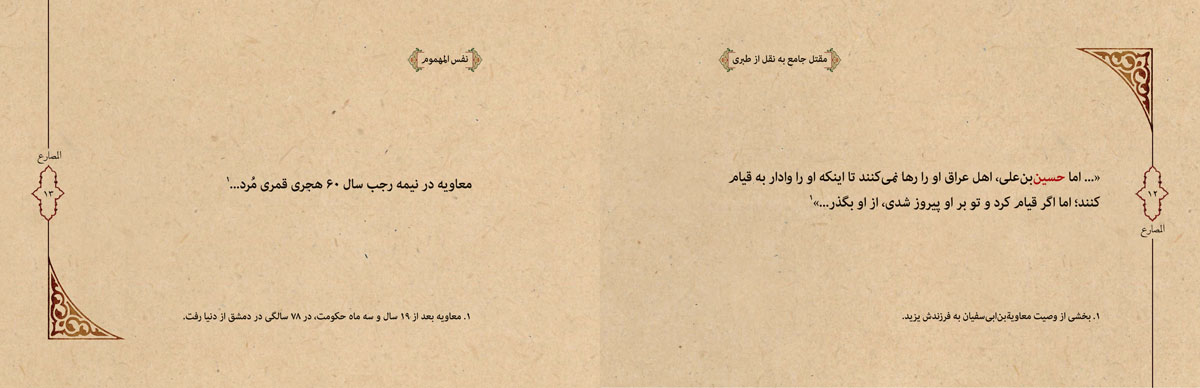 مقتل جامع به نقل از طبری
«... اما حسین‌بن‌علی، اهل عراق او را رها نمی‌کنند تا اینکه او را وادار به قیام
کنند؛ اما اگر قیام کرد و تو بر او پیروز شدی، از او بگذر...»۱
۱. بخشی از وصیت معاویة‌بن‌ابی‌سفیان به فرزندش یزید.
۱۲
المصارع
نفس المهموم
معاویه در نیمه رجب سال ۶۰ هجری قمری مُرد...۱
۱. معاویه بعد از ۱۹ سال و سه ماه حکومت، در ۷۸ سالگی در دمشق از دنیا رفت.
المصارع
۱۳